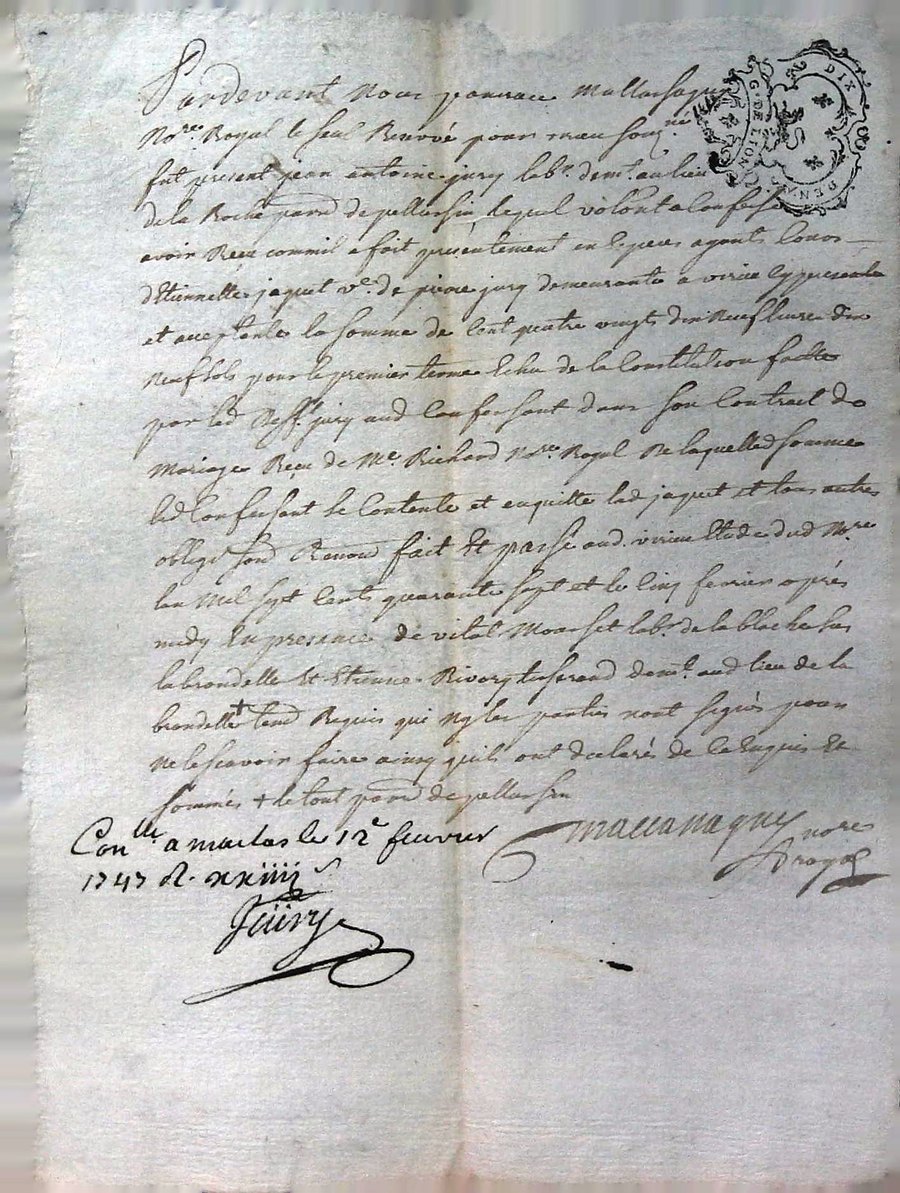 Pardevant Nous
Nore. Royal le seul Reservé pour
fut present jean antoine jury labr. demt. au lieu
de la Roche paroi de pellussin lequel volont a confessé
avoir Reçu comme il a fait presentement en especes
d'Etiennette jaquet ve. de piere jury demeurante a virieu cy presente
et acceptante la somme de Cent quatre vingt dix Neuf livres dix
Neuf sols pour le premier terme Echu de la Constitution faitte
par led defft. jury aud Confessant dans son Contract de
Mariage Reçu de Me. Richard Nore Royal De laquelle somme
led Confessant se Contente et en quitte lad jaquet et tous autres
oblige fait Et passé aud. virieu Etude dud Nore
lan Mil sept Cents quarante sept et le Cinq fevrier après
midy En presence de vital labr. de la blache
la brondelle Et Etienne Rivory tisserand demt. aud lieu de la
brondelle + Requis qui Ny les parties n'ont signés pour
Ne le scavoir faire ainsy quils ont declarés de Ce Enquis Et
sommés + le tout paroi de pellussin
nore
royal
Conlle a marlas le 12e feuvrier
1747 R. xxiiii s
Jüry
G. DE LION
DIX DEN.